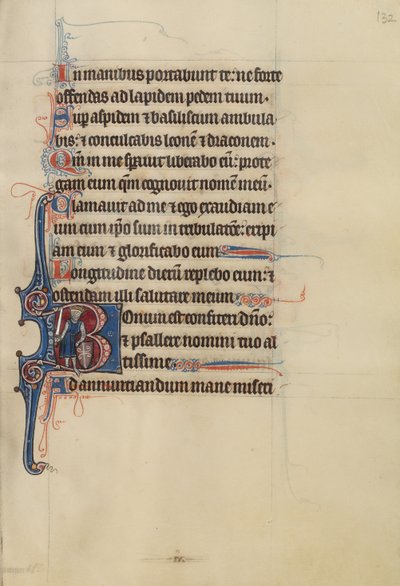 132
In manibus portabunt te: ne forte
offendas ad lapidem pedem tuum.
Sup aspidem & basiliscum ambula
bis: & conculcabis leonē & draconem.
Qm̄ in me spauit liberabo eū: prote
gam eum qm̄ cognouit nomē meū.
Clamauit ad me & ego exaudiam e
um cum ip̄o sum in tribulatōe: eripi
am eum & glorificabo eum
Longitudine dierū replebo eum: &
ostendam illi salutare meum.
Bonum est confiteri dn̄o:
& psallere nomini tuo al
tissime
Ad annuntiandum mane miseri